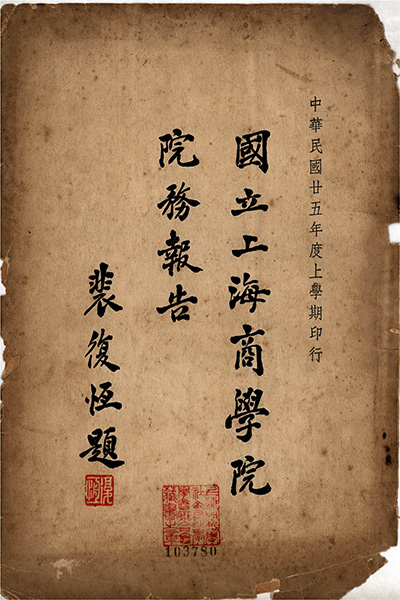 中華民國廿五年度上學期印行
國立上海商學院
院務報告
裴復恒題
103780